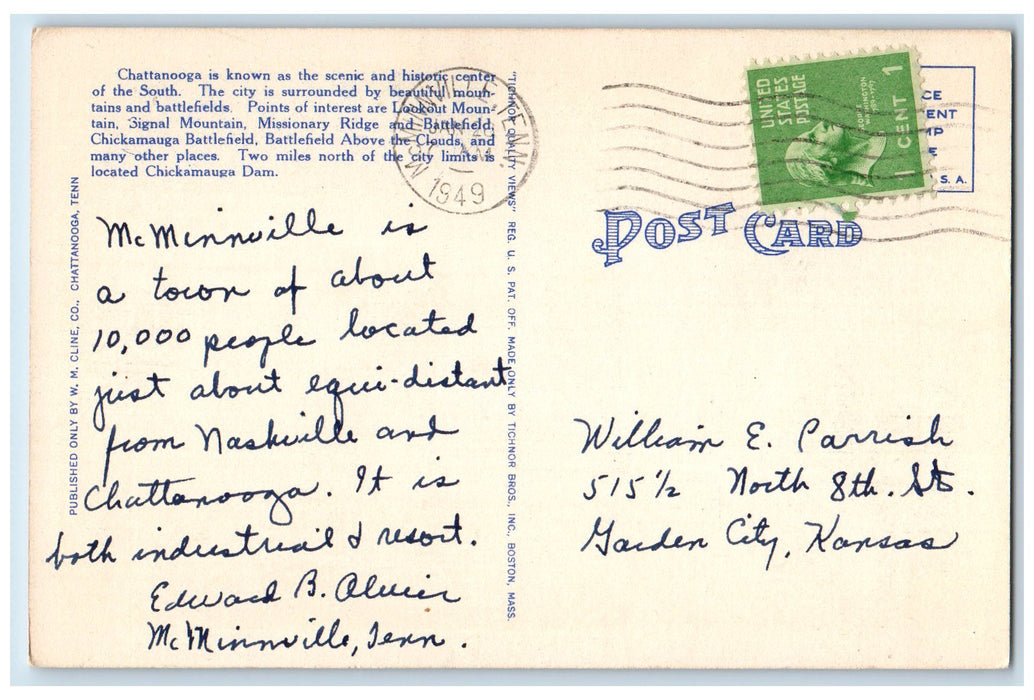 Chattanooga is known as the scenic and historic center
of the South. The city is surrounded by beautiful moun-
tains and battlefields. Points of interest are Lookout Moun-
tain, Signal Mountain, Missionary Ridge and Battlefield,
Chickamauga Battlefield, Battlefield Above the Clouds, and
many other places. Two miles north of the city limits is
located Chickamauga Dam.
PUBLISHED ONLY BY W. M. CLINE, CO., CHATTANOOGA, TENN
McMinnville is
a town of about
10,000 people located
just about equi-distant
from Nashville and
Chattanooga. It is
both industrial & resort.
Edward B.
McMinnville, Tenn.
"TICHNOR QUALITY VIEWS" REG. U. S. PAT. OFF. MADE ONLY BY TICHNOR BROS., INC., BOSTON, MASS.
McMINNVILLE, TENN.
AM
1949
UNITED
STATES
POSTAGE
GEORGE WASHINGTON
1 CENT 1
CE
ENT
MP
E
S. A.
POST CARD
William E. Parrish
515 1/2 North 8th. St.
Garden City, Kansas